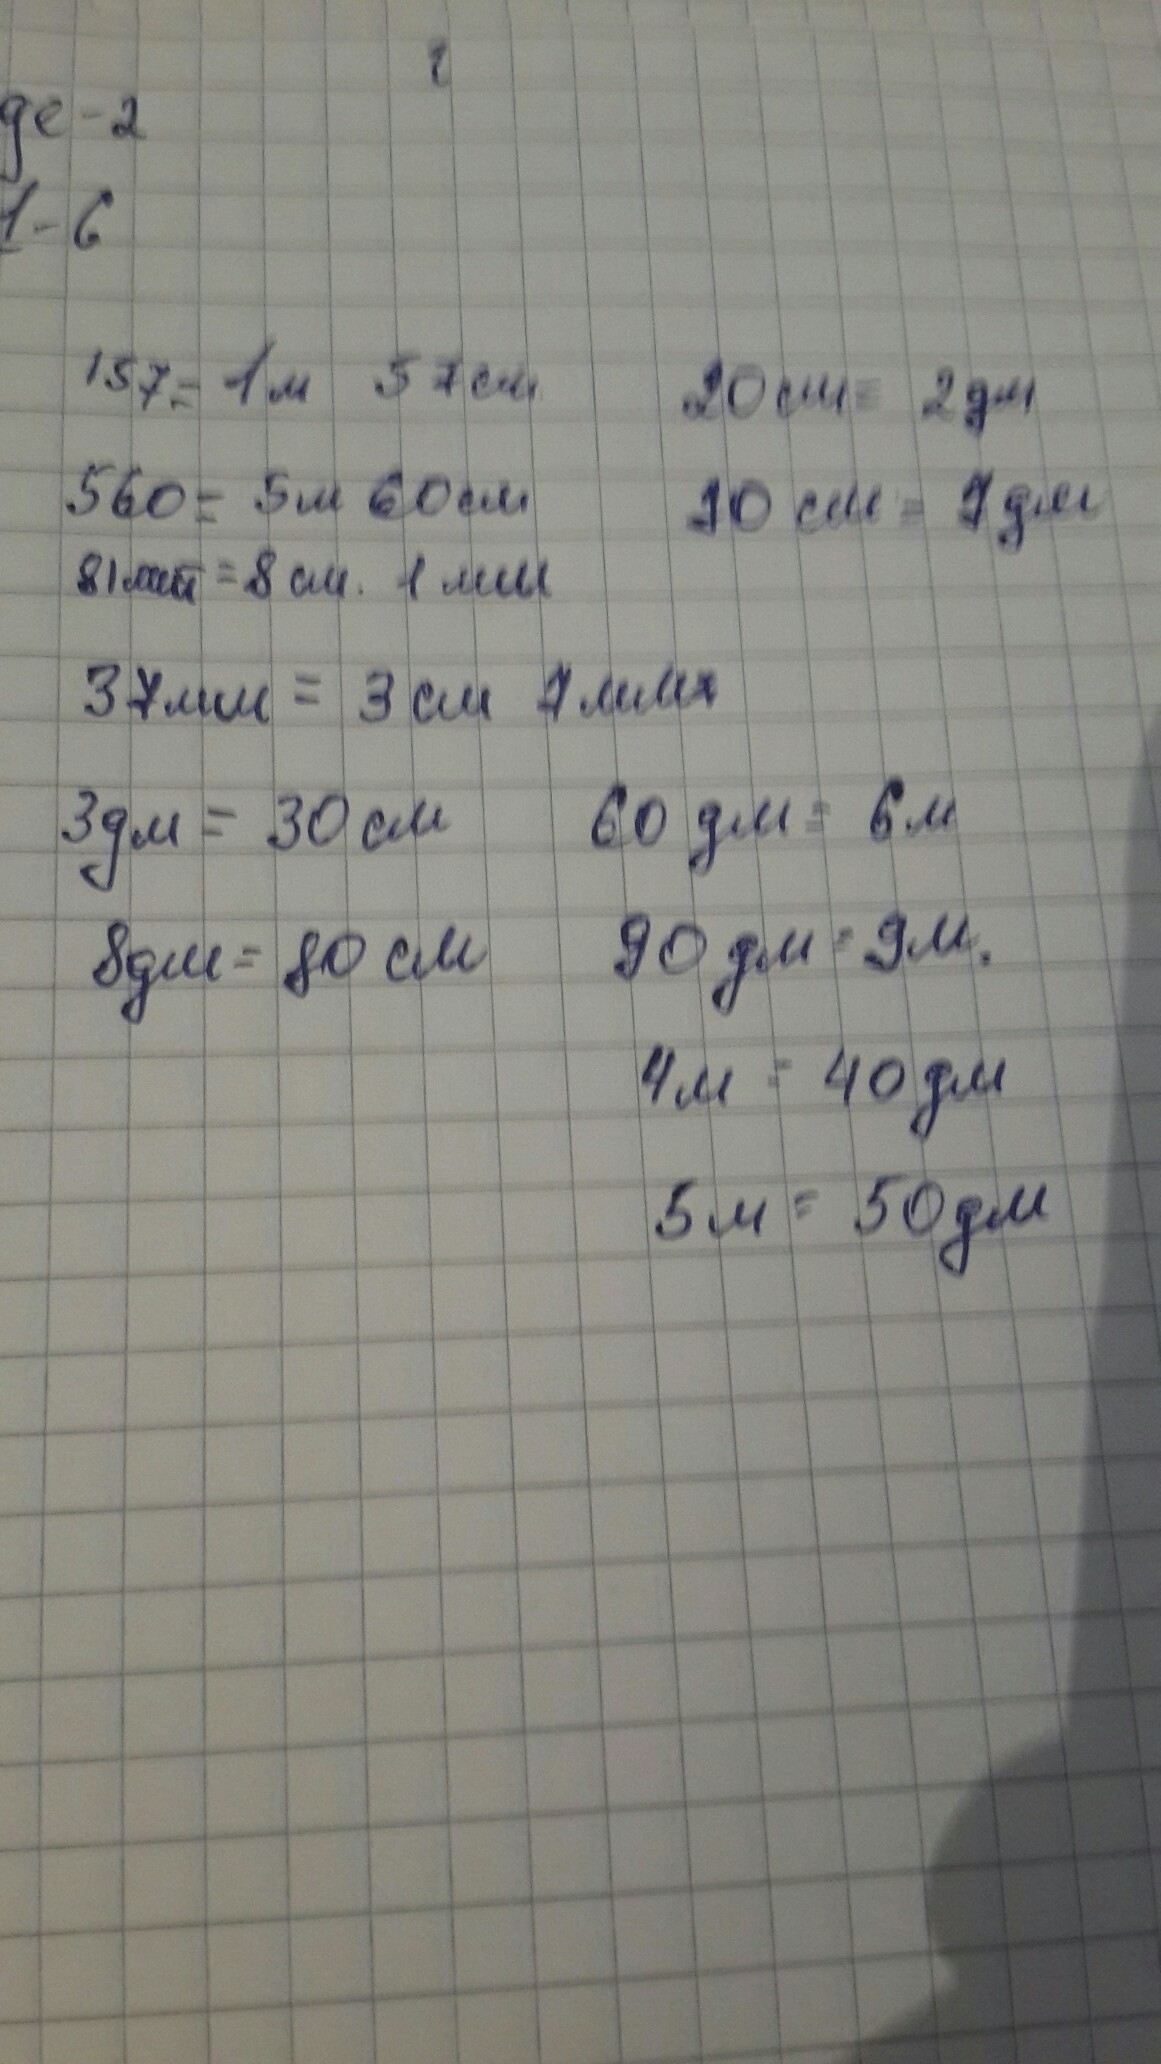 де - 2
1 - 6
157 = 1м 57см 20см = 2дм
560 = 5м 60см 70 см = 7дм
81мм = 8 см. 1 мм
37мм = 3 см 7мм
3дм = 30 см 60 дм = 6м
8дм = 80 см 90 дм = 9м.
4м = 40 дм
5м = 50дм